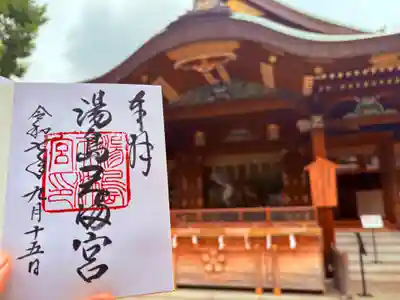 奉拝
湯島天満宮
令和七年九月十五日